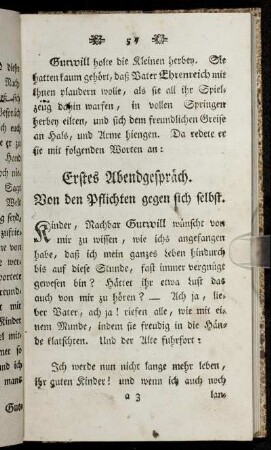 5
Gutwill holte die Kleinen herbey. Sie
hatten kaum gehört, daß Vater Ehrenreich mit
ihnen plaudern wolle, als sie all ihr Spiel-
zeug dahin warfen, in vollen Springen
herbey eilten, und sich dem freundlichen Greise
an Hals, und Arme hiengen. Da redete er
sie mit folgenden Worten an:
Erstes Abendgespräch.
Von den Pflichten gegen sich selbst.
Kinder, Nachbar Gutwill wünscht von
mir zu wissen, wie ichs angefangen
habe, daß ich mein ganzes Leben hindurch
bis auf diese Stunde, fast immer vergnügt
gewesen bin? Hättet ihr etwa Lust das
auch von mir zu hören? — Ach ja, lie-
ber Vater, ach ja! riefen alle, wie mit ei-
nem Munde, indem sie freudig in die Hän-
de klatschten. Und der Alte fuhr fort:
Ich werde nun nicht lange mehr leben,
ihr guten Kinder! und wenn ich auch noch
a 3 lan-